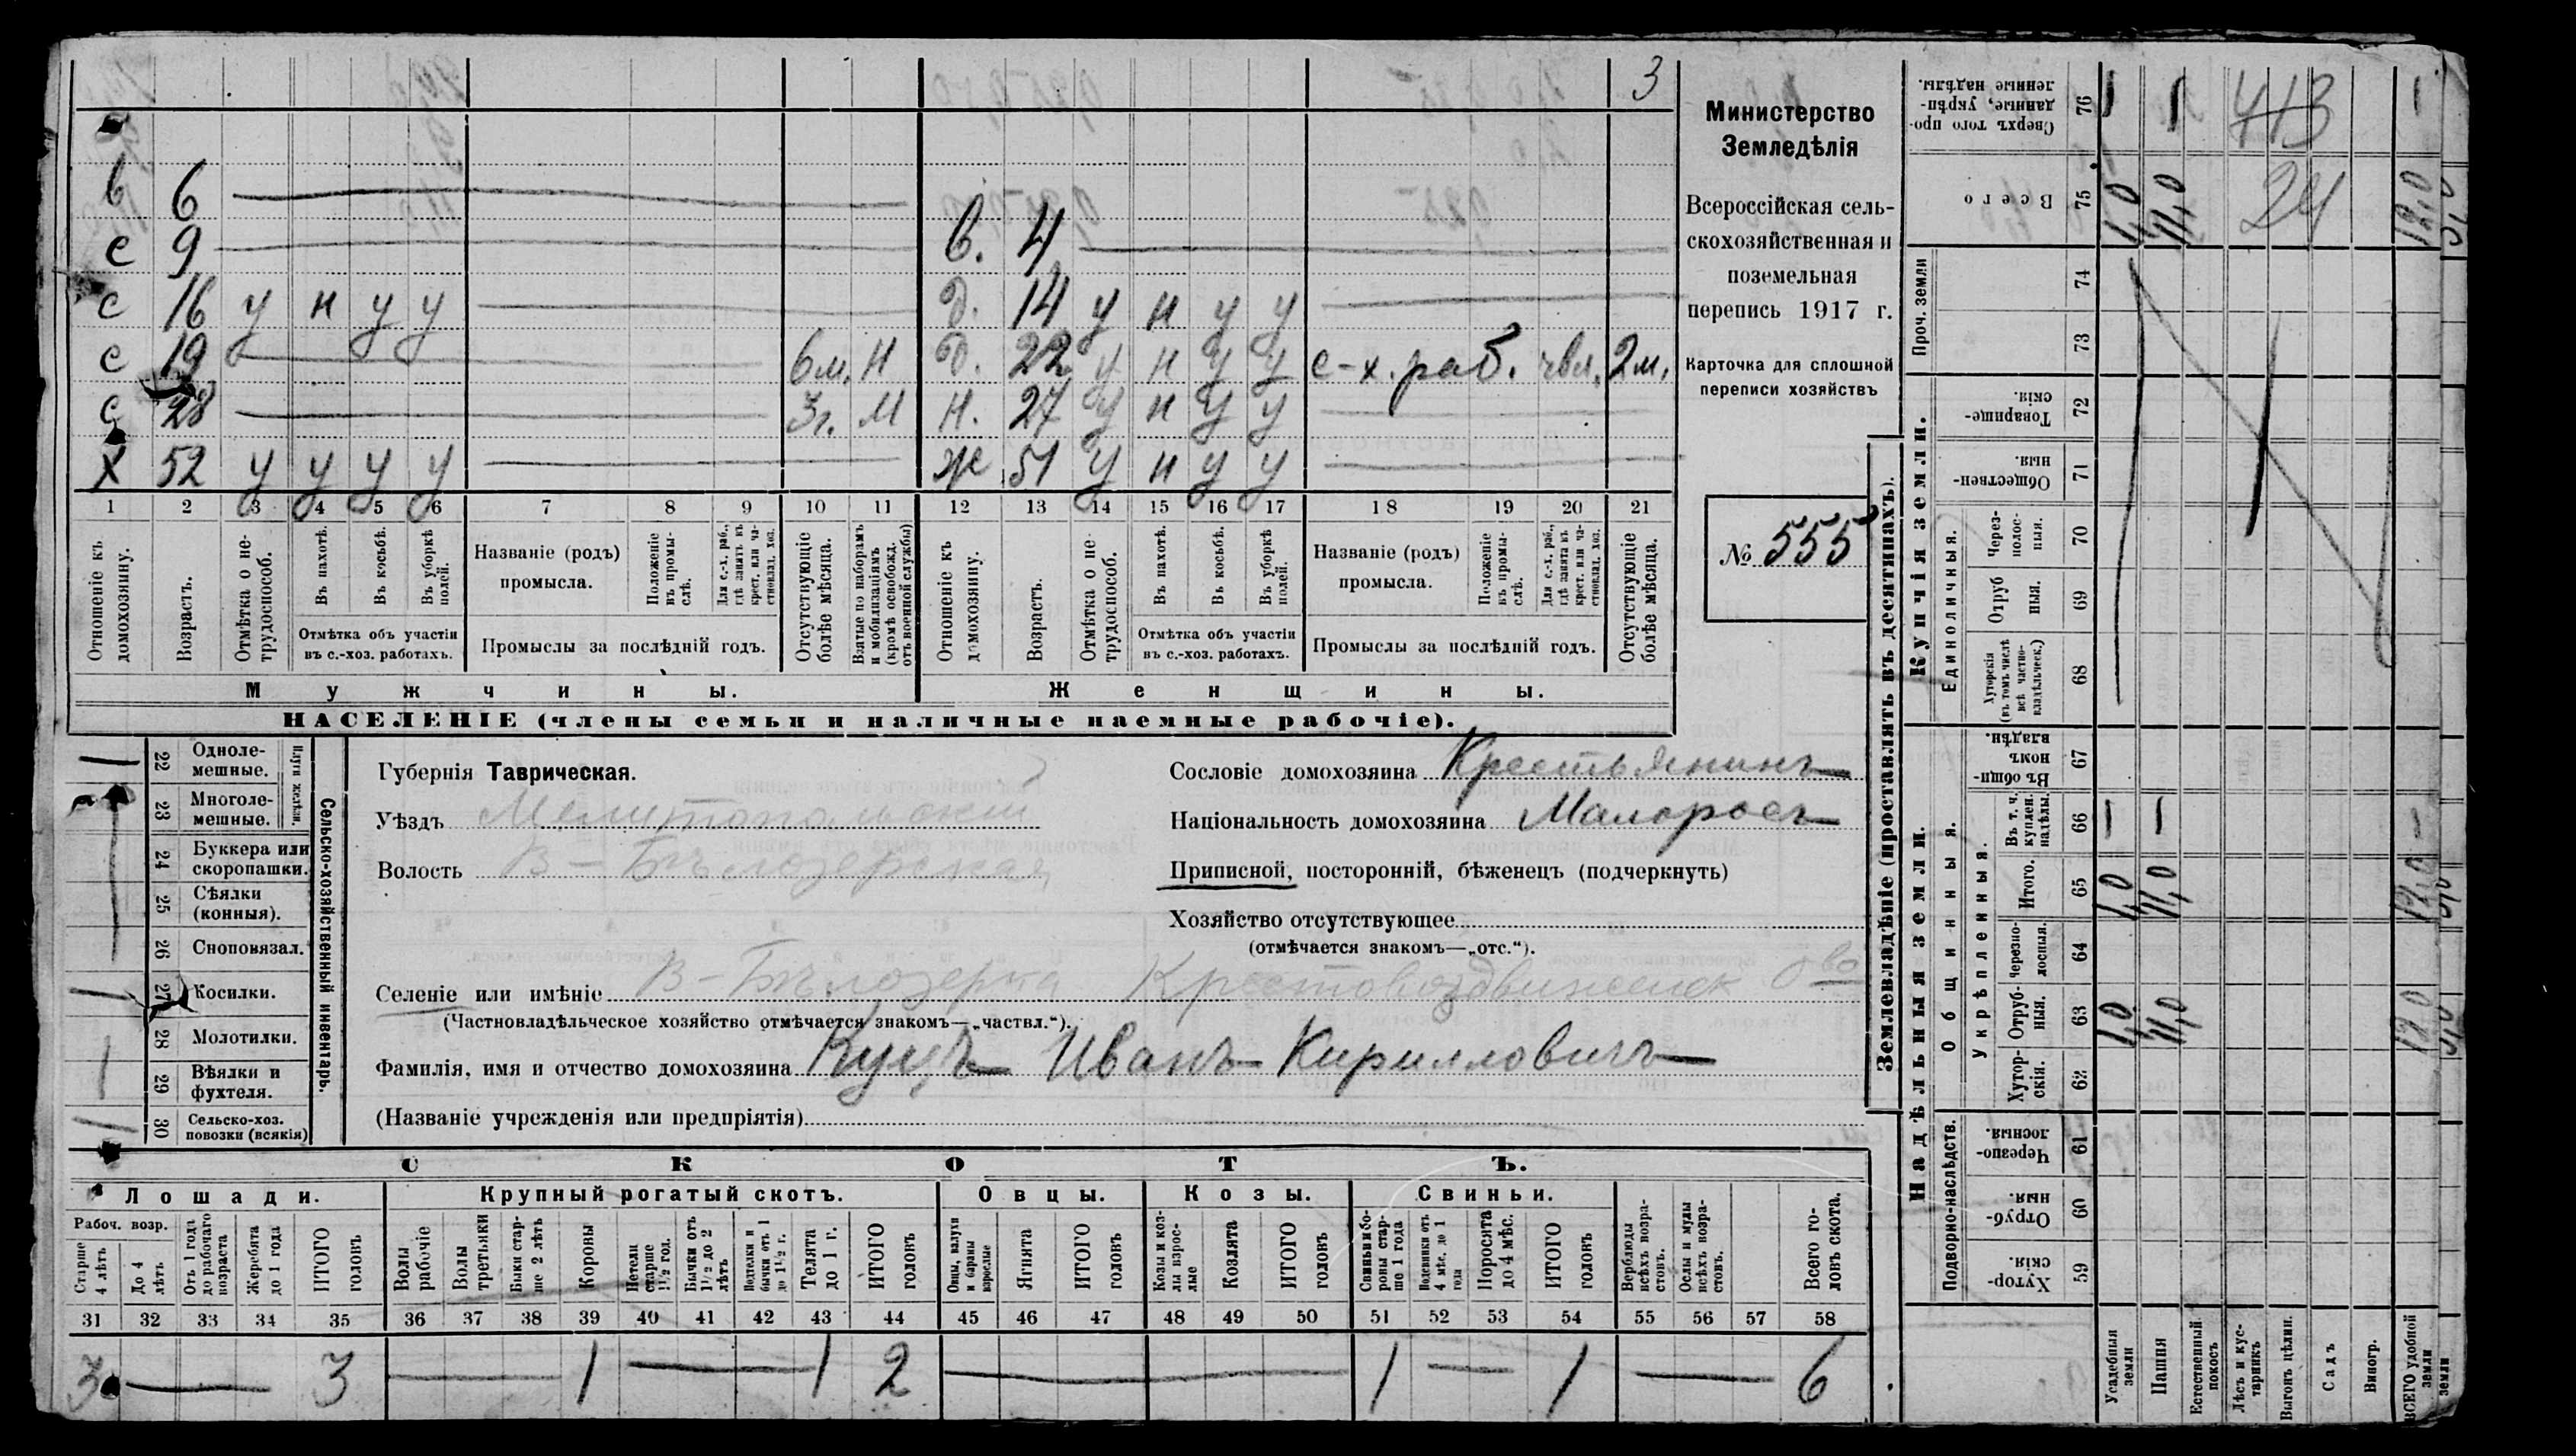 3
в 6
с 9 в. 4
с 16 у н у у д. 14 у н у у
с 19 6 м. Н д. 22 у н у у с-х. раб. 2 м.
с 28 3 г. М н. 27 у н у у
х 52 у у у у ж 51 у н у у
1 2 3 4 5 6 7 8 9 10 11 12 13 14 15 16 17 18 19 20 21
Отношеніе къ домохозяину.
Возрастъ.
Отмѣтка о нетрудоспособ.
Въ пахотѣ.
Въ косьбѣ.
Въ уборкѣ полей.
Отмѣтка объ участіи въ с.-хоз. работахъ.
Названіе (родъ) промысла.
Положеніе въ промыслѣ.
Для с.-х. раб., гдѣ занятъ въ крест. или частновлад. хоз.
Промыслы за послѣдній годъ.
Отсутствующіе болѣе мѣсяца.
Взятые по наборамъ и мобилизаціямъ (кромѣ освобожд. отъ военной службы)
Отношеніе къ домохозяину.
Возрастъ.
Отмѣтка о нетрудоспособ.
Въ пахотѣ.
Въ косьбѣ.
Въ уборкѣ полей.
Отмѣтка объ участіи въ с.-хоз. работахъ.
Названіе (родъ) промысла.
Положеніе въ промыслѣ.
Для с.-х. раб., гдѣ занята въ крест. или частновлад. хоз.
Промыслы за послѣдній годъ.
Отсутствующіе болѣе мѣсяца.
Мужчины. Женщины.
НАСЕЛЕНІЕ (члены семьи и наличные наемные рабочіе).
Министерство
Земледѣлія
Всероссійская сель-
скохозяйственная и
поземельная
перепись 1917 г.
Карточка для сплошной
переписи хозяйствъ
№ 555
22 Одноле-
мешные.
23 Многоле-
мешные.
Плуги желѣзн.
24 Буккера или
скоропашки.
25 Сѣялки
(конныя).
26 Сноповязал.
27 Косилки.
28 Молотилки.
29 Вѣялки и
фухтеля.
30 Сельско-хоз.
повозки (всякія)
Сельско-хозяйственный инвентарь.
Губернія Таврическая.
Уѣздъ Мелитопольскій
Волость В-Бѣлозерская
Селеніе или имѣніе В-Бѣлозерка Крестовоздвиженск о-во
(Частновладѣльческое хозяйство отмѣчается знакомъ—„частвл.“).
Фамилія, имя и отчество домохозяина Куцъ Иванъ Кирилловичъ
(Названіе учрежденія или предпріятія)
Сословіе домохозяина Крестьянинъ
Національность домохозяина Малороссъ
Приписной, посторонній, бѣженецъ (подчеркнуть)
Хозяйство отсутствующее
(отмѣчается знакомъ—„отс.“).
СКОТЪ.
Лошади. Крупный рогатый скотъ. Овцы. Козы. Свиньи.
Рабоч. возр.
Старше 4 лѣтъ
До 4 лѣтъ
Отъ 1 года до рабочаго возраста
Жеребята до 1 года
ИТОГО головъ
Волы рабочіе
Волы третьяки
Быки старше 2 лѣтъ
Коровы
Нетели старше 1 1/2 год.
Бычки отъ 1 1/2 до 2 лѣтъ
Подтелки и бычки отъ 1 до 1 1/2 г.
Телята до 1 г.
ИТОГО головъ
Овцы, валухи и бараны взрослые
Ягнята
ИТОГО головъ
Козы и козлы взрослые
Козлята
ИТОГО головъ
Свиньи и бороны старше 1 года
Подсвинки отъ 4 мѣс. до 1 года
Поросята до 4 мѣс.
ИТОГО головъ
Верблюды всѣхъ возрастовъ.
Ослы и мулы всѣхъ возрастовъ.
Всего головъ скота.
31 32 33 34 35 36 37 38 39 40 41 42 43 44 45 46 47 48 49 50 51 52 53 54 55 56 57 58
3 3 1 1 2 1 1 6
Землевладѣніе (проставлять въ десятинахъ).
Сверхъ того проданные, укрѣпленные надѣлы. 76 413
Всего 75 1,0 11,0 24 12,0
Купчія земли.
Проч. земли 74
73
Товарищескія. 72
Общественныя. 71
Единоличныя.
Черезполосныя. 70
Отрубныя. 69
Хуторскія (въ томъ числѣ всѣ частновладѣльческ.) 68
Надѣльныя земли.
Въ общинномъ владѣн. 67
Общинныя.
Укрѣпленныя.
Въ т. ч. куплен. надѣлы. 66
Итого. 65 1,0 11,0 12,0
Черезполосныя. 64
Отрубныя. 63 1,0 11,0 12,0
Хуторскія. 62
Подворно-наслѣдств.
Черезполосныя. 61
Отрубныя. 60
Хуторскія. 59
Усадебныя земли
Пашня
Естественный покосъ
Лѣсъ и кустарникъ
Выгонъ цѣлин.
Садъ
Виногр.
ВСЕГО удобной земли
земли